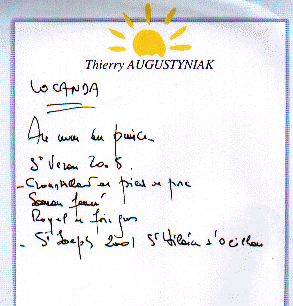 Thierry AUGUSTYNIAK
LOCANDA
Au menu du prince
St Veran 2005
- Croustillant de pied de porc
Saumon fumé
Royal de foie gras
- St Joseph 2001 St Hilaire d'Ozilhan